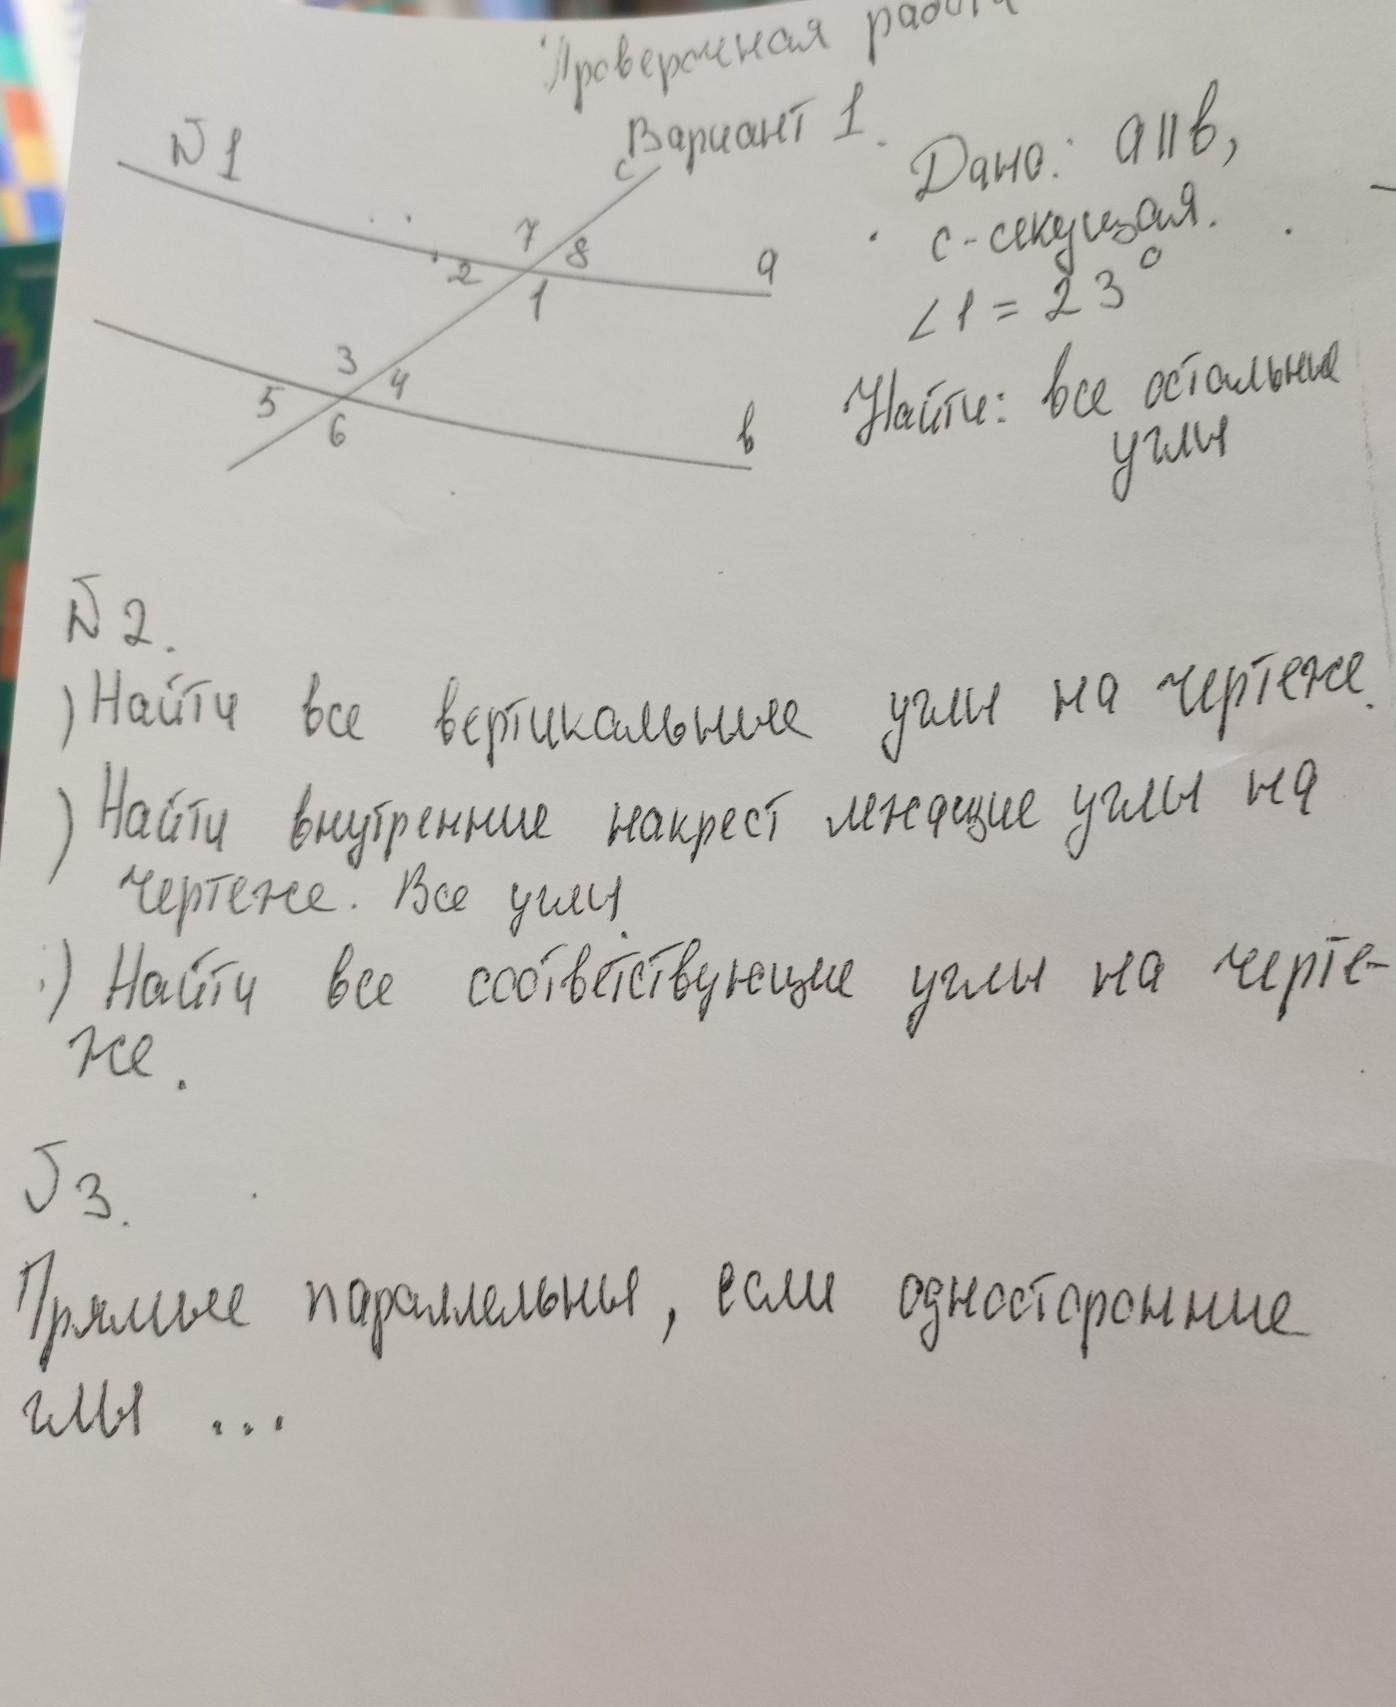 Проверочная работа
Вариант 1.
№1
Дано: a||b,
c-секущая.
∠1=23°
Найти: все остальные
углы
c
7
8
2
1
a
3
4
5
6
b
№2.
) Найти все вертикальные углы на чертеже.
) Найти внутренние накрест лежащие углы на
чертеже. Все углы.
) Найти все соответствующие углы на черте-
же.
№3.
Прямые параллельны, если односторонние
глы ...